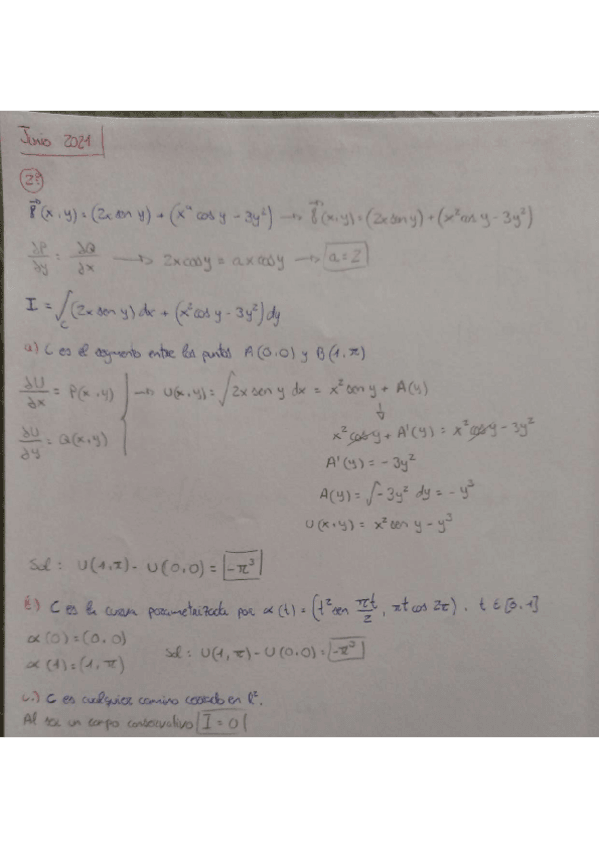 Junio 2021
2º
F(x,y) = (2x sen y) + (xᵃ cos y - 3y²) → F(x,y) = (2x sen y) + (x² cos y - 3y²)
∂P/∂y = ∂Q/∂x → 2x cos y = a x cos y → a = 2
I = ∫_C (2x sen y) dx + (x² cos y - 3y²) dy
a) C es el segmento entre los puntos A(0,0) y B(1,π)
∂U/∂x = P(x,y) → U(x,y) = ∫ 2x sen y dx = x² sen y + A(y)
↓
∂U/∂y = Q(x,y) x² cos y + A'(y) = x² cos y - 3y²
A'(y) = -3y²
A(y) = ∫ -3y² dy = -y³
U(x,y) = x² sen y - y³
Sol: U(1,π) - U(0,0) = -π³
b) C es la curva parametrizada por α(t) = (t² sen πt/2, πt cos 2π), t ∈ [0,1]
α(0) = (0,0)
α(1) = (1,π) Sol: U(1,π) - U(0,0) = -π³
c.) C es cualquier camino cerrado en ℝ².
Al ser un campo conservativo I = 0